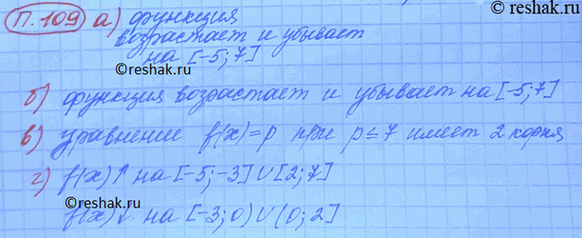 П.109 а) функция
возрастает и убывает
на [-5;7]
©reshak.ru
б) функция возрастает и убывает на [-5;7]
в) уравнение f(x)=p при p≤7 имеет 2 корня
©reshak.ru
г) f(x)↑ на [-5;-3]∪[2;7]
f(x)↓ на [-3;0)∪(0;2]